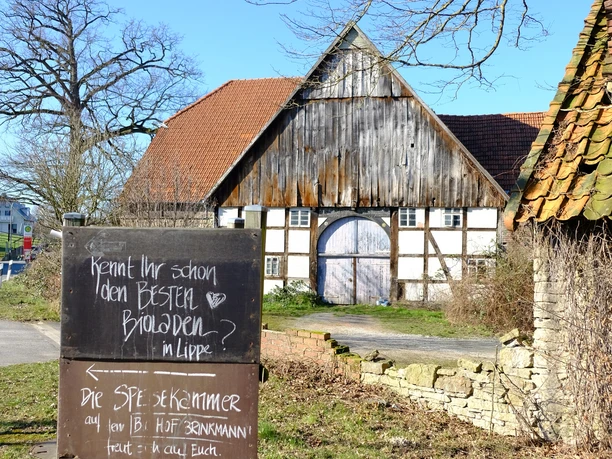 Kennt Ihr schon
den BESTEN
BIOLADEN?
in Lippe
Die SPEISEKAMMER
auf dem HOF BRINKMANN
freut sich auf Euch.